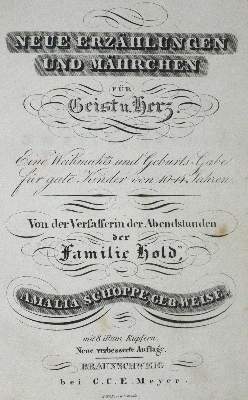 NEUE ERZÄHLUNGEN
UND MÄHRCHEN
FÜR
Geist u. Herz
Eine Weihnachts und Geburts-Gabe
für gute Kinder von 10-14 Jahren
Von der Verfasserin der Abendstunden
der
Familie Hold,
AMALIA SCHOPPE GEB WEISE.
mit 8 illum: Kupfern.
Neue verbesserte Auflage.
BRAUNSCHWEIG
bei G.C.E. Meyer.